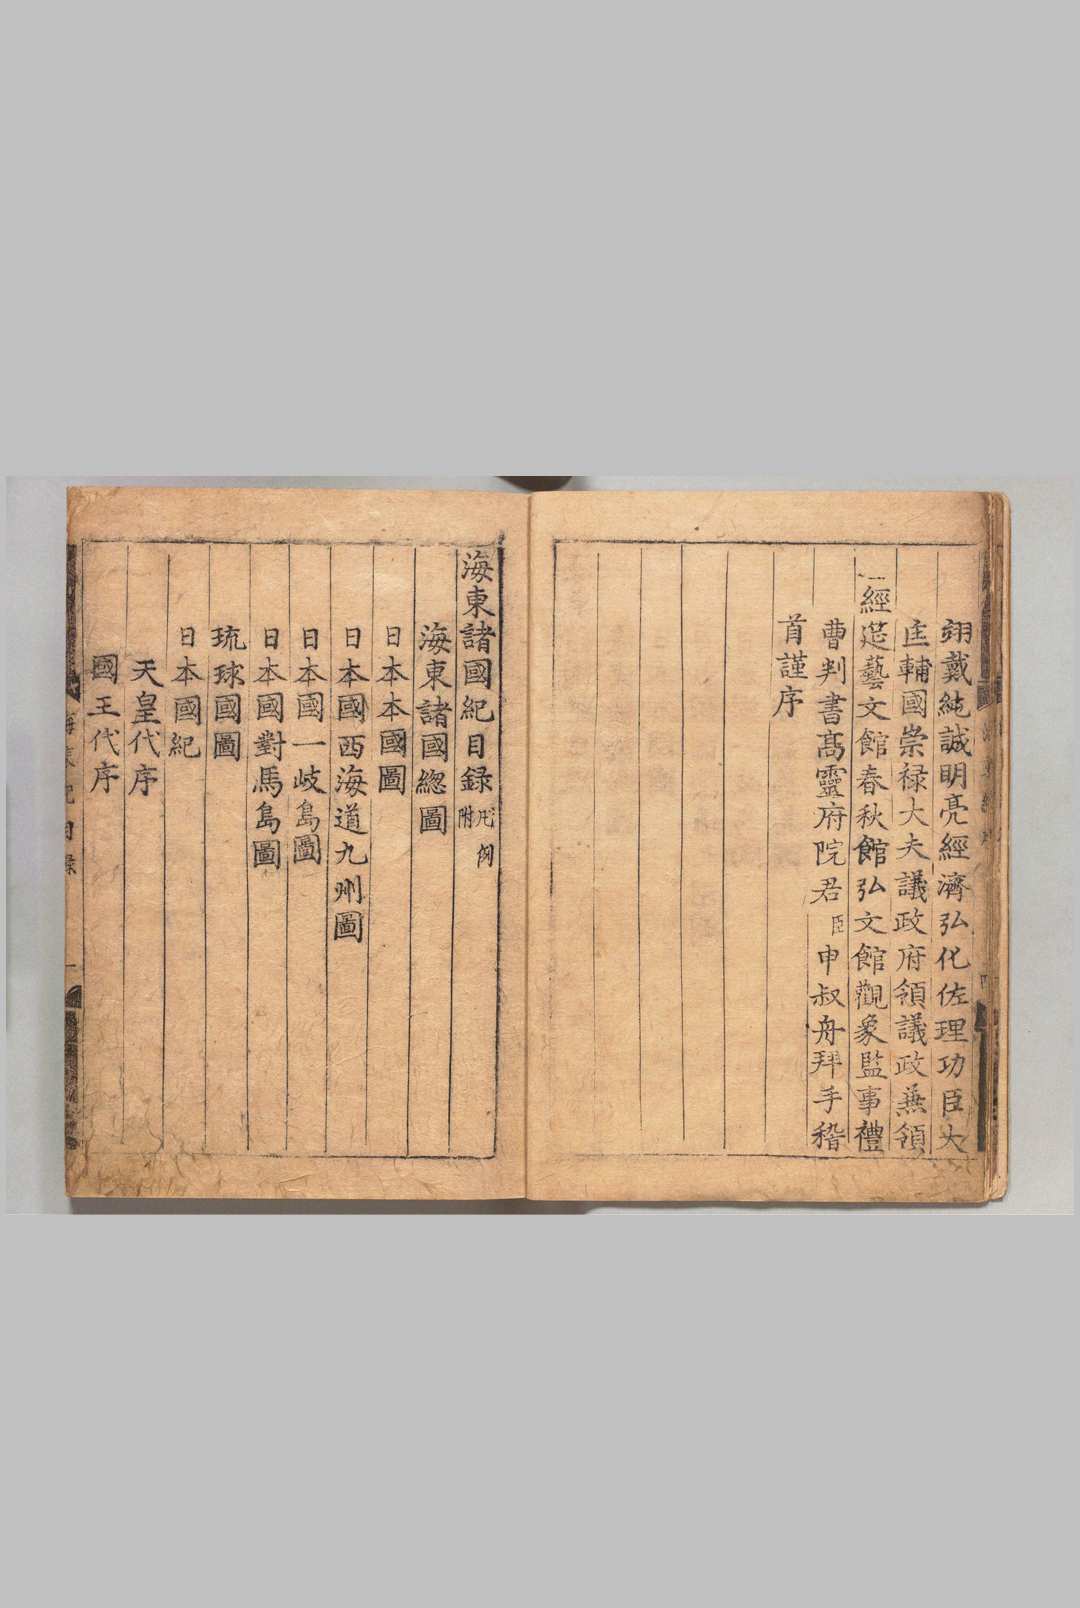 翊戴純誠明亮經濟弘化佐理功臣大
匡輔國崇禄大夫議政府領議政兼領
經筵藝文館春秋館弘文館觀象監事禮
曹判書高靈府院君臣申叔舟拜手稽
首謹序
海東諸國紀目録凡例附
海東諸國緫圖
日本本國圖
日本國西海道九州圖
日本國一岐島圖
日本國對馬島圖
琉球國圖
日本國紀
天皇代序
國王代序
海東紀目録 一